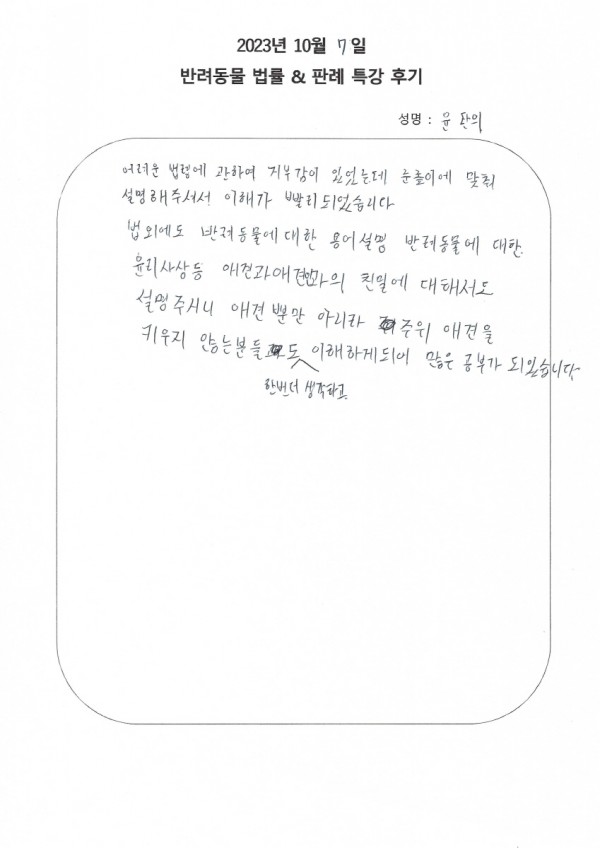 2023년 10월 7일
반려동물 법률 & 판례 특강 후기
성명 : 윤
어려운 법령에 관하여 거부감이 있었는데 눈높이에 맞춰
설명해주셔서 이해가 빨리되었습니다
법외에도 반려동물에대한 용어설명 반려동물에 대한.
윤리사상등 애견과애견인과의 친밀에 대해서도
설명주시니 애견뿐만 아니라 주위 애견을
키우지 않는분들도 한번더 생각하고 이해하게되어 많은 공부가 되었습니다.